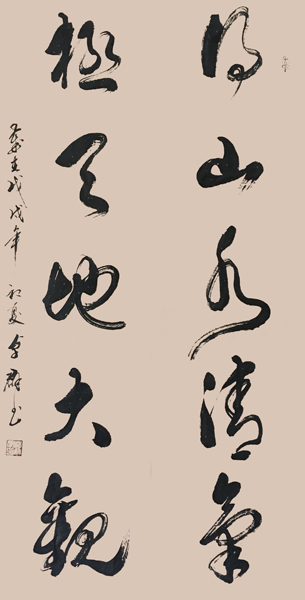 得山水清氣
極天地大觀
歲在戊戌年初夏